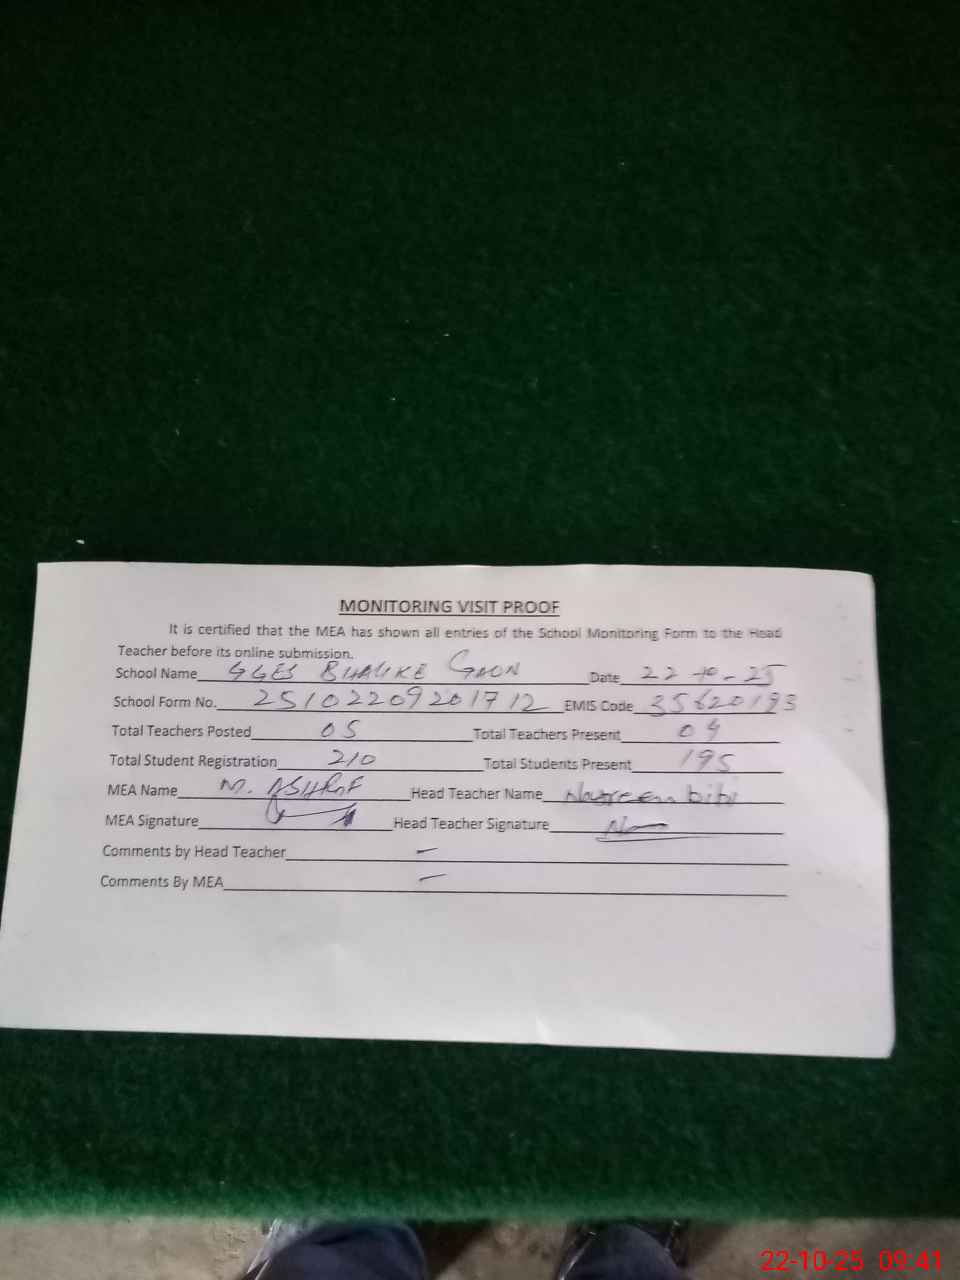 MONITORING VISIT PROOF
It is certified that the MEA has shown all entries of the School Monitoring Form to the Head
Teacher before its online submission.
School Name GGES BHALIKE GAON Date 22-10-25
School Form No. 25102209201712 EMIS Code 35620193
Total Teachers Posted 05 Total Teachers Present 04
Total Student Registration 210 Total Students Present 195
MEA Name M. ASHRAF Head Teacher Name Nasreen bibi
MEA Signature Head Teacher Signature
Comments by Head Teacher –
Comments By MEA –
22-10-25 09:41